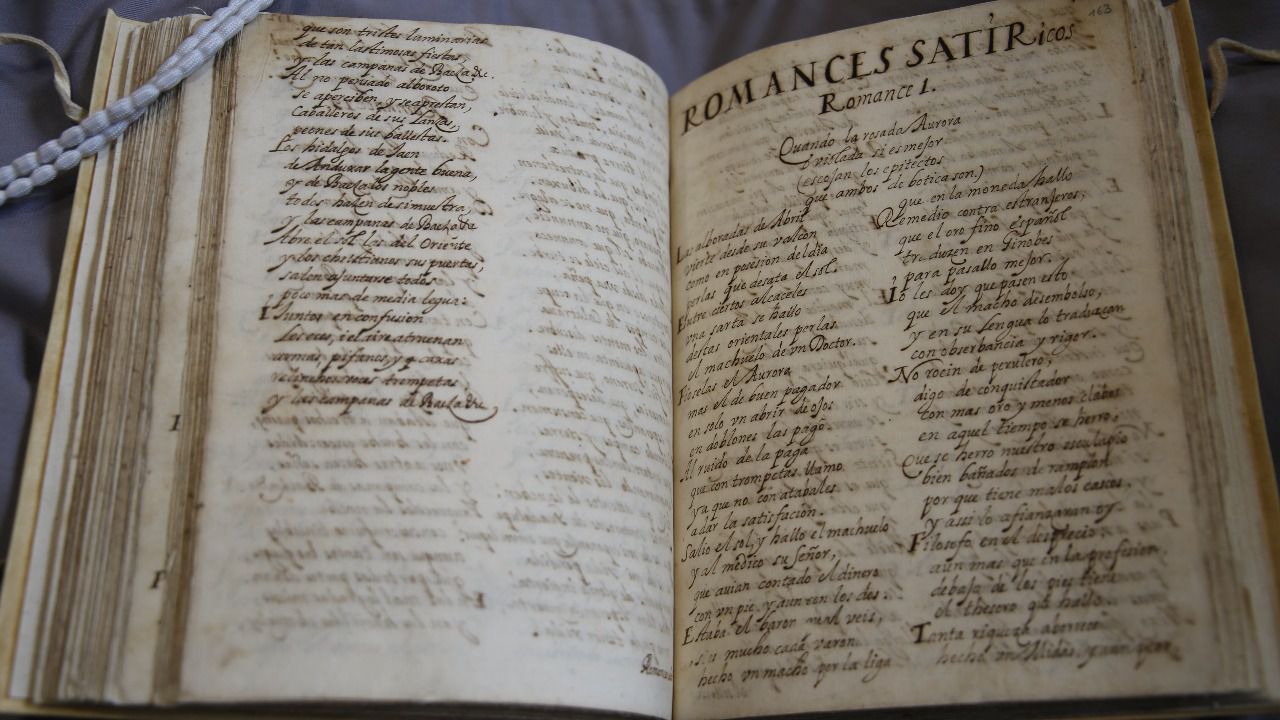 que son tristes laminarias
de tan lastimosas fiestas,
y las campanas de Baeza &c.
Al no pensado alboroto
se aperciben, y se aprestan,
Caualleros de sus lanças,
peones de sus ballestas.
Los hidalgos de Jaen
de Anduxar la gente buena,
y de Baeza los nobles
todos hazen de si muestra,
y las campanas de Baeza &c
Abre el sol las del Oriente
y los christianos sus puertas,
salen a juntarse todos
poco mas de media legua:
Juntos en confusion
los ecos, i el aire atruenan
armas, pifanos, y caxas
trompetas
y las campanas de Baeza &c
163
ROMANCES SATIRicos
Romance 1.
Quando la rosada Aurora
ò violada si es mejor
(escojan los epitectos
que ambos de botica son.)
Las alboradas de Abril
vierte desde su valcon
como en posesion del dia
perlas que desata el sol.
Entre ciertos alcaceles
vna sarta se hallo
destas orientales perlas
el machuelo de vn Doctor.
Fioselas el Aurora
mas el de buen pagador
en solo vn abrir de ojos
en doblones las pago.
Al ruido de la paga
que con trompetas llamo
ya que no con atabales
a dar la satisfacion.
Salio el sol, y hallo el machuelo
y al medico su señor,
que auian contado el dinero
con vn pie, y aun con los dos.
Estaba el baron qual veis,
si es mucho cada varon
hecho vn macho por la liga
que en la moneda hallo
Remedio contra estranjeros,
que el oro fino español
traduzen en Ginobes
para pasallo mejor.
Io les doy que pasen esto
que el macho desembolso,
y en su lengua lo traduzcan
con obserbancia y rigor.
No rocin de perulero,
digo de conquistador
con mas oro y menos clabos
en aquel tiempo se herro.
Que se herro nuestro esculapio
bien bañados de rampion
por que tiene malos cascos,
y assi lo afianzaran oy.
Filosofo en el desprecio,
aun mas que en la profesion
debajo de los pies tiene
el thesoro que hallo.
Tanta riqueza aborrece
hecho vn Midas, y aun peor